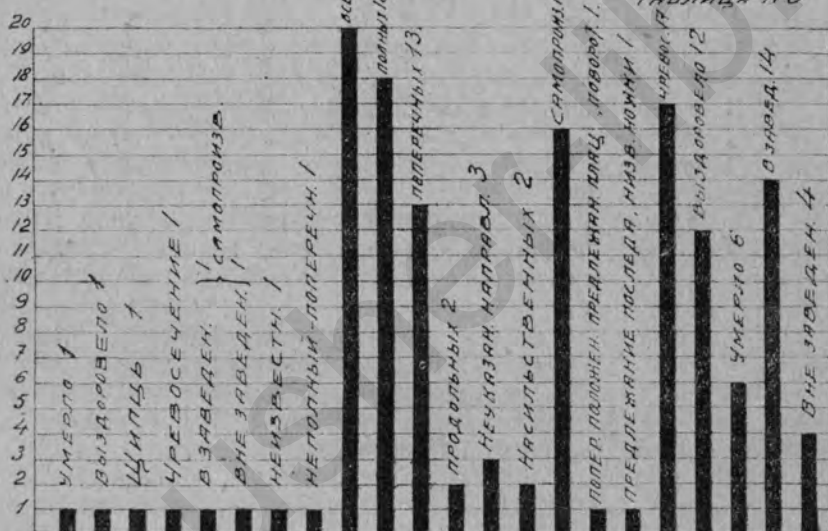 20
19
18
17
16
15
14
13
12
11
10
9
8
7
6
5
4
3
2
1
УМЕРЛО 1
ВЫЗДОРОВЕЛО 1
ЩИПЦЬ 1
ЧРЕВОСЕЧЕНИЕ 1
В ЗАВЕДЕН. 1
ВНЕ ЗАВЕДЕН. 1
САМОПРОИЗВ.
НЕИЗВЕСТН. 1
НЕПОЛНЫЙ-ПОПЕРЕЧН. 1
ПОПЕРЕЧНЫХ 13.
ПРОДОЛЬНЫХ 2
НЕУКАЗАН. НАПРАВЛ. 3
НАСИЛЬСТВЕННЫХ 2
САМОПРОИЗ
ПОПЕР. ПОЛОЖЕН. ПРЕДЛЕЖАН. ПЛАЦ. ПОВОРОТ. 1.
ПРЕДЛЕЖАНИЕ ПОСЛЕДА, НИЗВ. НОЖКИ 1
ЧРЕВОС. 17
ВЫЗДОРОВЕЛО 12
УМЕРЛО 6
В ЗАВЕД. 14
ВНЕ ЗАВЕДЕН. 4